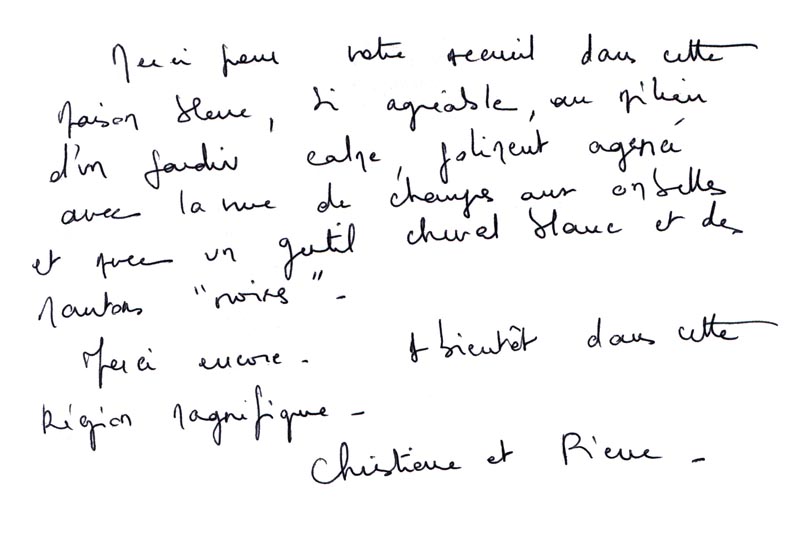 Merci pour votre accueil dans cette
maison bleue, si agréable, au milieu
d'un jardin calme, joliment agencé
avec la vue de champs aux ombelles
et avec un gentil cheval blanc et des
moutons "noirs" -
Merci encore - A bientôt dans cette
Région magnifique -
Christiane et Pierre -